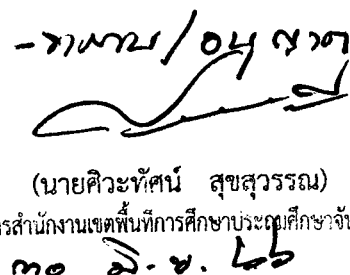 - ทราบ / อนุญาต
(นายศิวะทัศน์ สุขสุวรรณ)
การสำนักงานเขตพื้นที่การศึกษาประถมศึกษาจัน
๓๐ มิ.ย. ๖๖